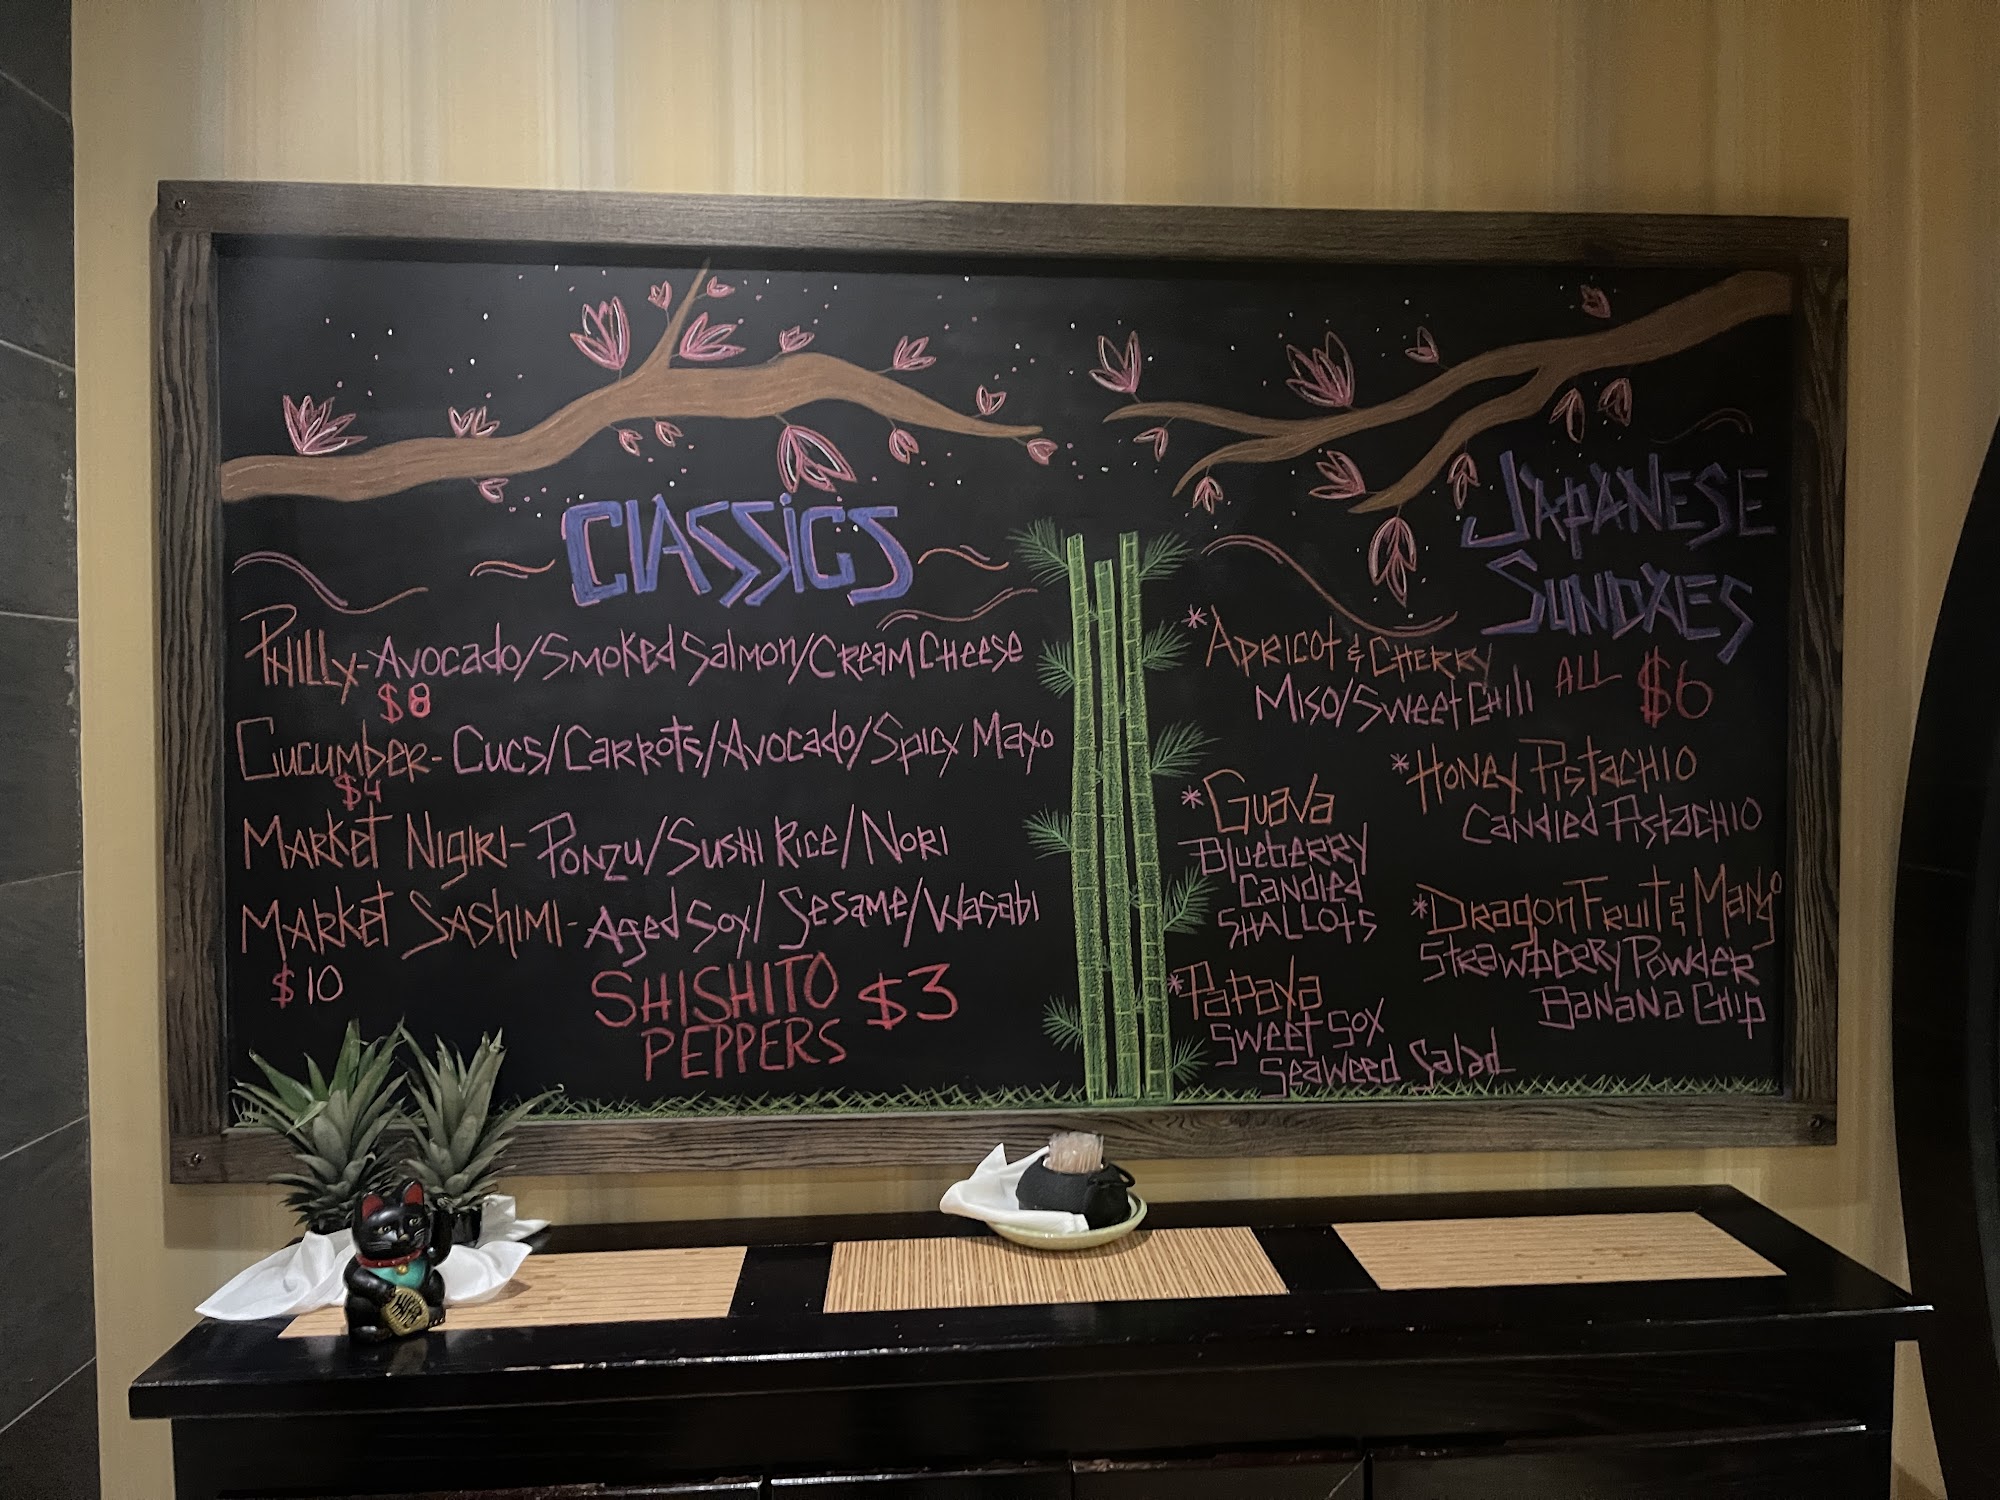 CLASSiCS
PHILLy-AVOCADO/SMOKED SALMON/CREAM CHEESE
$8
CUCUMBER-CUCS/CARROTS/AVOCADO/SPICY MAYO
$4
MARKET NIGIRI-PONZU/SUSHI RICE/NORI
MARKET SASHIMI-AGED SOY/SESAME/WASABI
$10
SHISHITO $3
PEPPERS
JAPANESE
SUNDAES
*APRICOT & CHERRY
MISO/SWEET CHILI
ALL $6
*HONEY PISTACHIO
CANDIED PISTACHIO
*GUAVA
BLUEBERRY
CANDIED
SHALLOTS
*DRAGON FRUIT & MANGO
STRAWBERRY POWDER
BANANA CHIP
*PAPAYA
SWEET SOY
SEAWEED SALAD